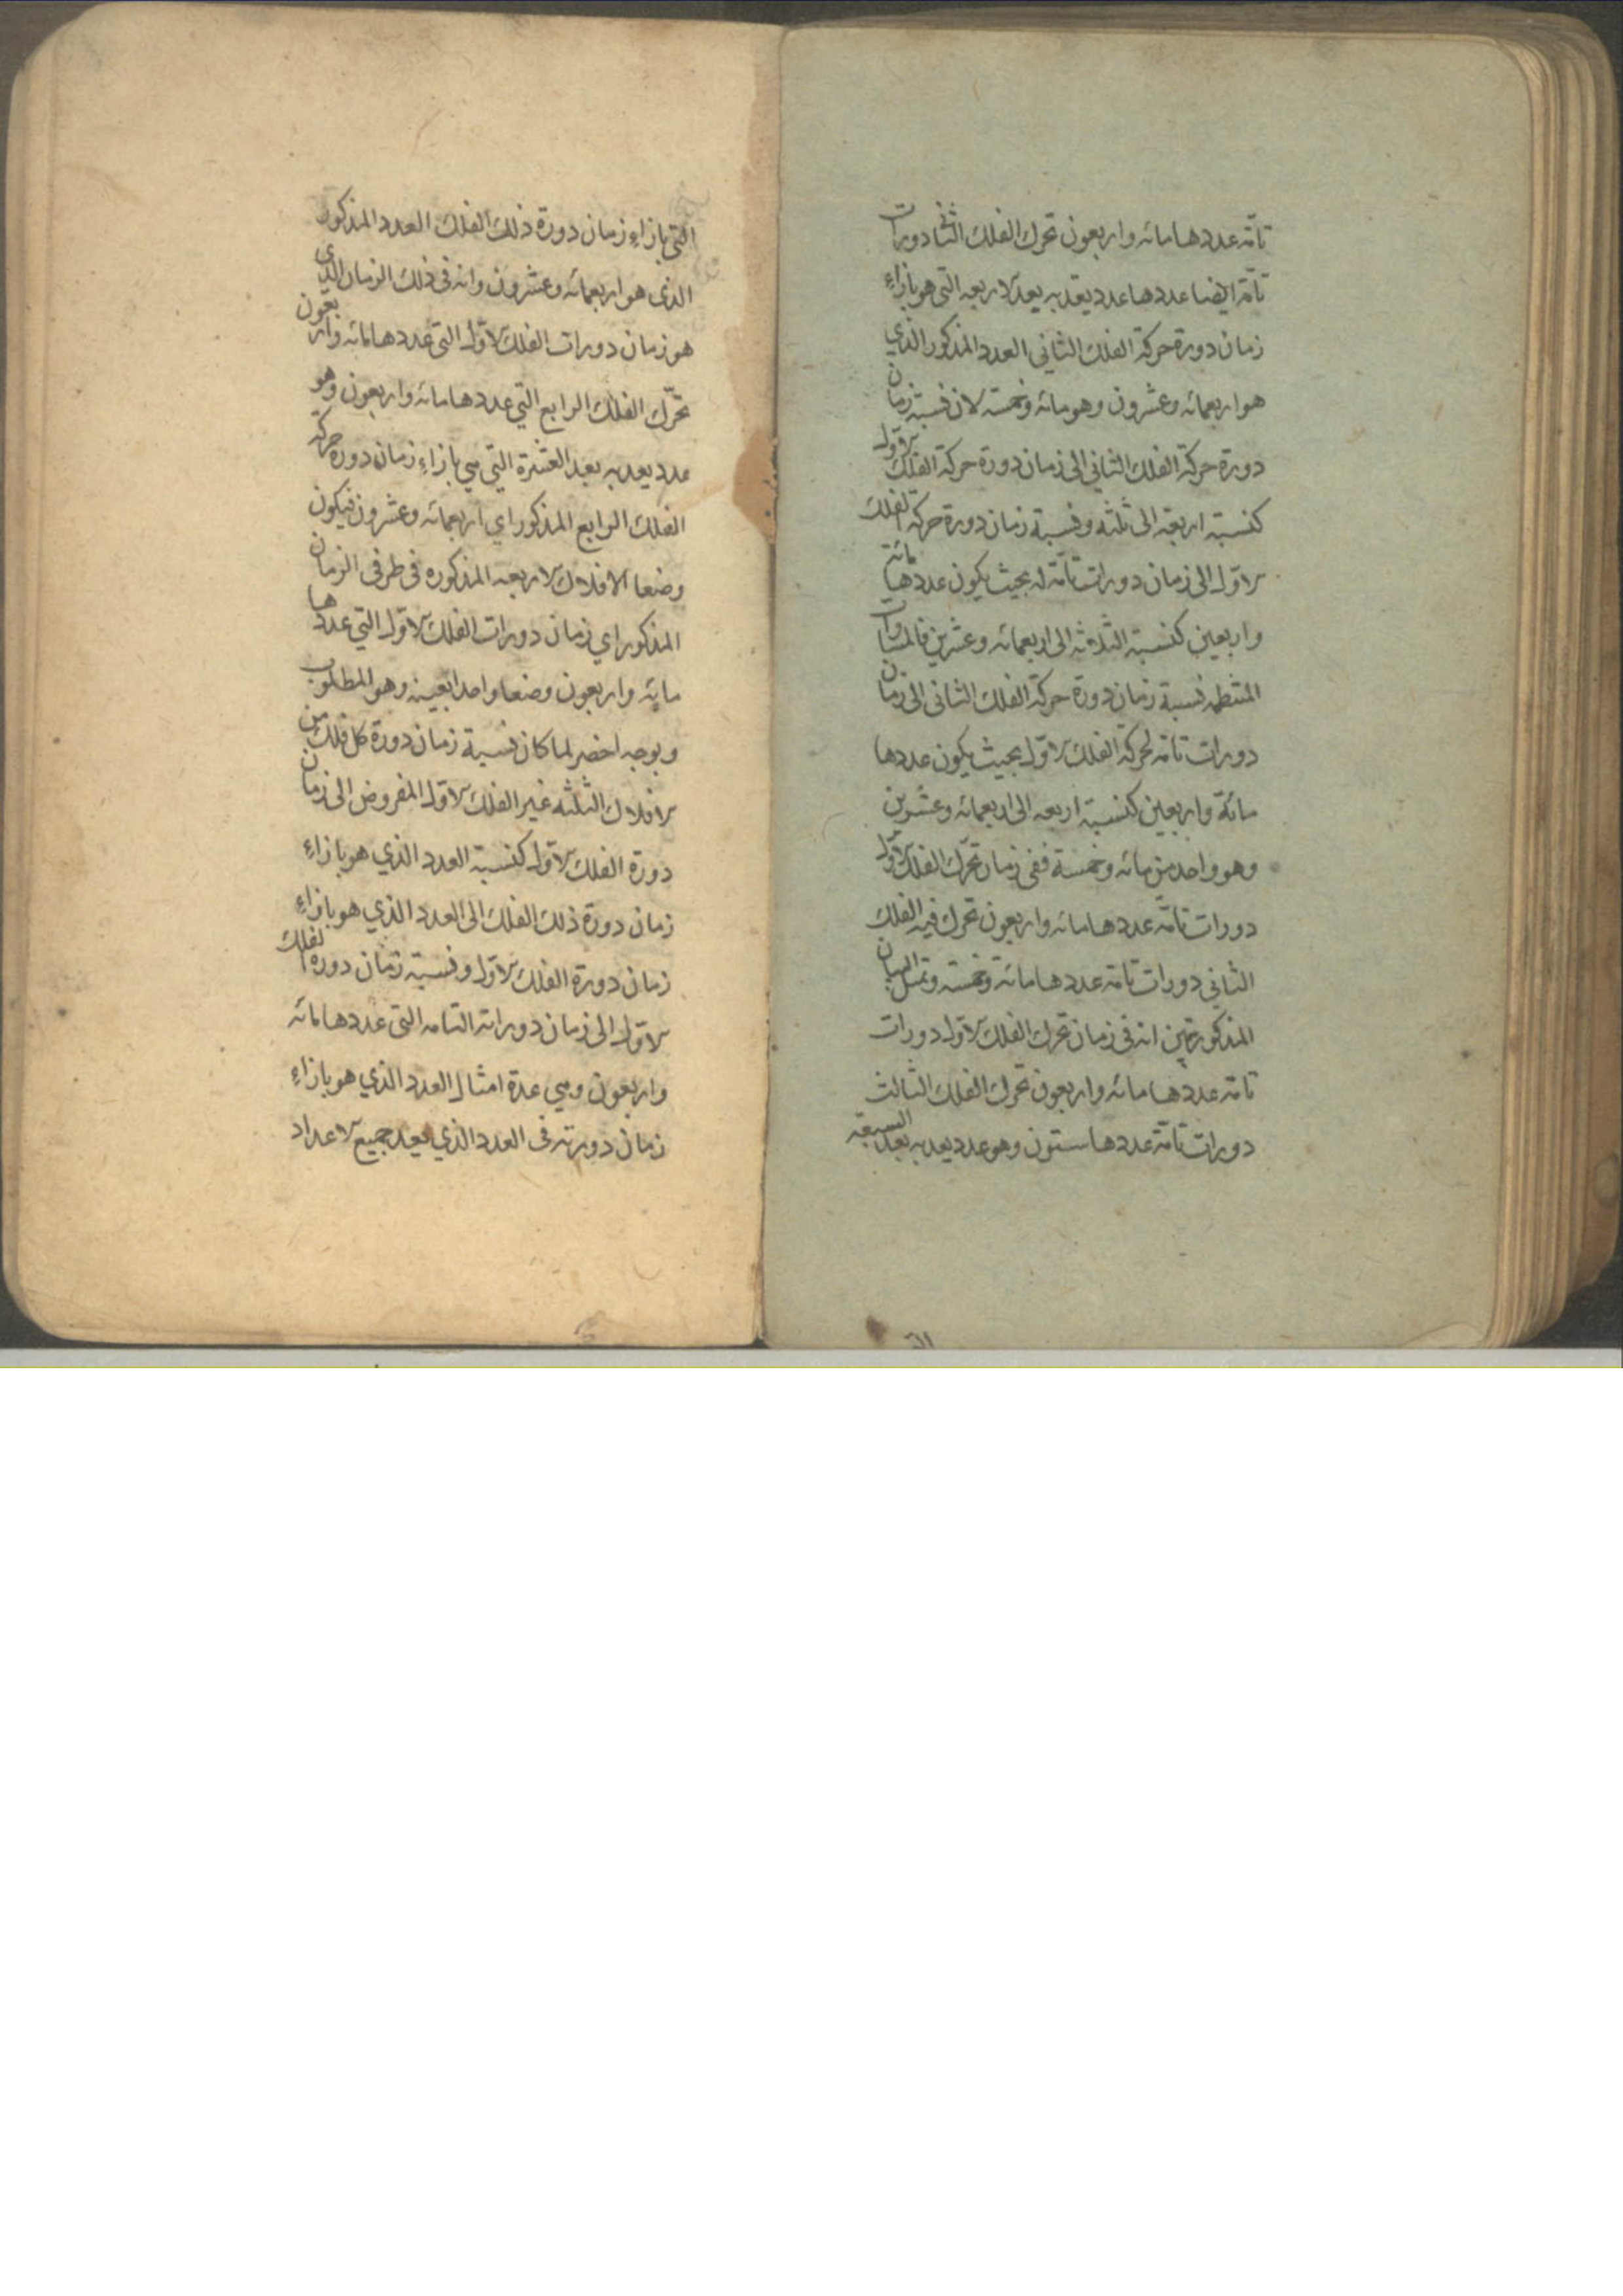 تامّه عددها مائه واربعون تحرك الفلك الثانی دورات
تامّة ايضا عددها عدد يعد به يعد الاربعه التی هو بازاء
زمان دورة حركة الفلك الثانی العدد المذكور الذی
هو اربعمائه وعشرون وهو مائه وخمسه لان نسبة زمان
دورة حركة الفلك الثانی الی زمان دورة حركة الفلك الاوّل
كنسبة اربعة الی ثلثه ونسبة زمان دورة حركة الفلك
الاوّل الی زمان دورات تامّة له بحيث يكون عددها مائة
واربعين كنسبة الثلاثه الی اربعمائه وعشرين فالمساوات
المنتظمه نسبة زمان دورة حركة الفلك الثانی الی زمان
دورات تامّه لحركة الفلك الاوّل بحيث يكون عددها
مائة واربعين كنسبة اربعه الی اربعمائه وعشرين
وهو واحد من مائه وخمسة ففی زمان تحرّك الفلك الاوّل
دورات تامّه عددها مائه واربعون تحرك فيه الفلك
الثانی دورات تامّة عددها مائة وخمسة وبمثل البيان
المذكور تبين انه فی زمان تحرك الفلك الاوّل دورات
تامّه عددها مائه واربعون تحرك الفلك الثالث
دورات تامّة عددها ستون وهو عدد يعد به يعد السبعة
التی بازاء زمان دورة ذلك الفلك العدد المذكور
الذی هو اربعمائه وعشرون وانه فی ذلك الزمان الذی
هو زمان دورات الفلك الاوّل التی عددها مائه واربعون
تحرّك الفلك الرابع التی عددها مائه واربعون وهو
عدد يعد به يعد العشرة التی هی بازاء زمان دورة حركة
الفلك الرابع المذكور ای اربعمائه وعشرون فيكون
وضعا الافلاك الاربعه المذكوره فی طرفی الزمان
المذكور ای زمان دورات الفلك الاوّل التی عددها
مائه واربعون وضعا واحدا بعينه وهو المطلوب
وبوجه اخصر لما كان نسبة زمان دورة كل فلك من
الافلاك الثلثه غير الفلك الاوّل المفروض الی زمان
دورة الفلك الاوّل كنسبة العدد الذی هو بازاء
زمان دورة ذلك الفلك الی العدد الذی هو بازاء
زمان دورة الفلك الاوّل ونسبة زمان دورة الفلك
الاوّل الی زمان دوراته التامه التی عددها مائه
واربعون وهی عدة امثال العدد الذی هو بازاء
زمان دورته فی العدد الذی يعد جميع الاعداد